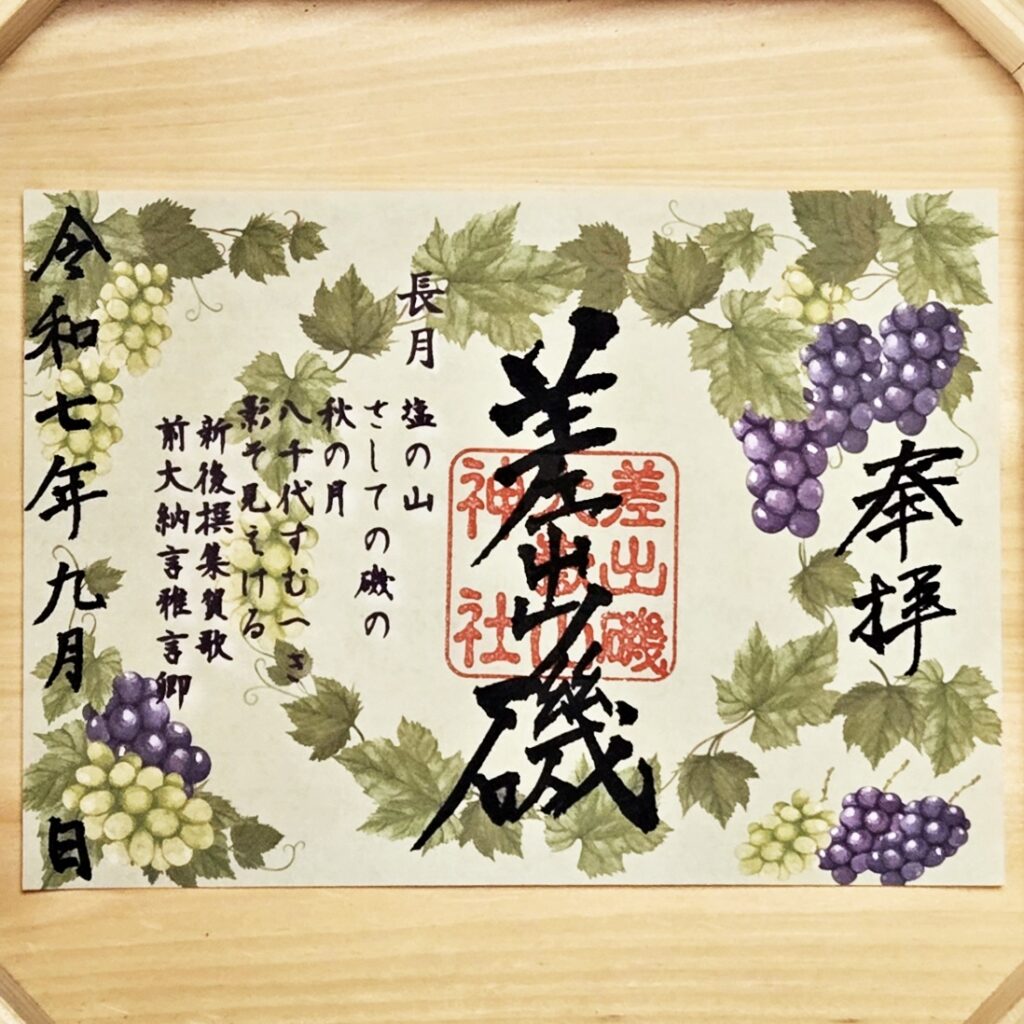 奉拝
差出磯
差出磯
大嶽山
神社
長月
塩の山
さしての磯の
秋の月
八千代すむへき
影そ見えける
新後撰集賀歌
前大納言雅言卿
令和七年九月 日